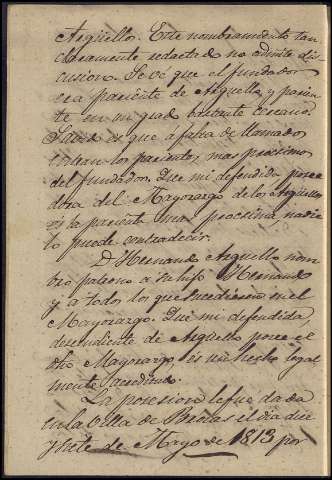 Argüello. Este nombramiento tan
claramente redactado no admite dis-
cusion. Se vé que el fundador
era pariente de Arguello y parien-
te en un grado bastante cercano.
Sabido es que á falta de llamados
entran los parientes mas procsimos
del fundador. Que mi defendida posee-
dora del Mayorazgo de los Arguellos
es la pariente mas procsima nadie
lo puede contradecir.
D. Hernando Arguello nom-
bro patrono a su hijo Hernando
y a todos los que sucediesen en el
Mayorazgo. Que mi defendida,
descendiente de Arguello posee el
dho Mayorazgo, és un hecho legal-
mente acreditado.
La posesion le fue dada
en la Villa de Brozas el dia diez
y siete de Mayo de 1813 por